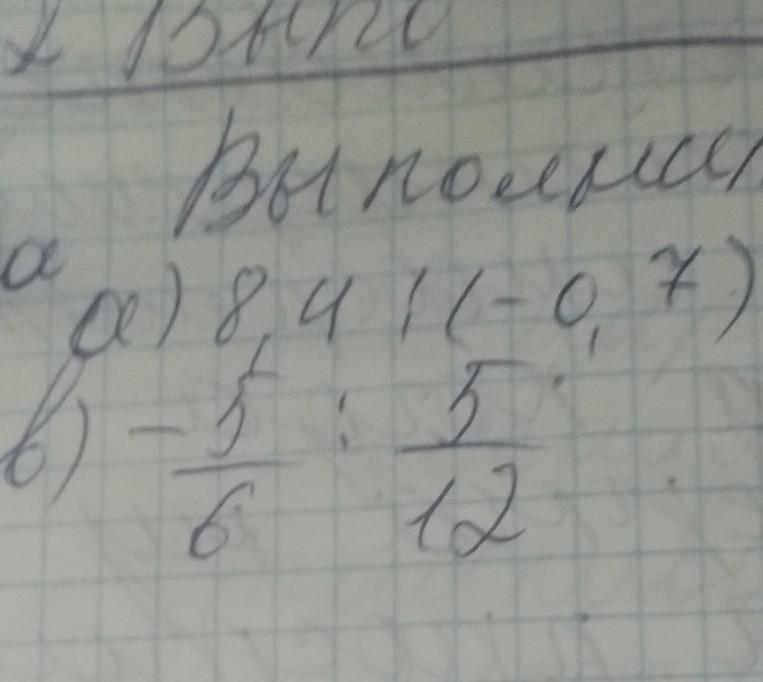 2 Выпо
Выполни
а
а) 8,4 : (-0,7)
в) - 5/6 : 5/12